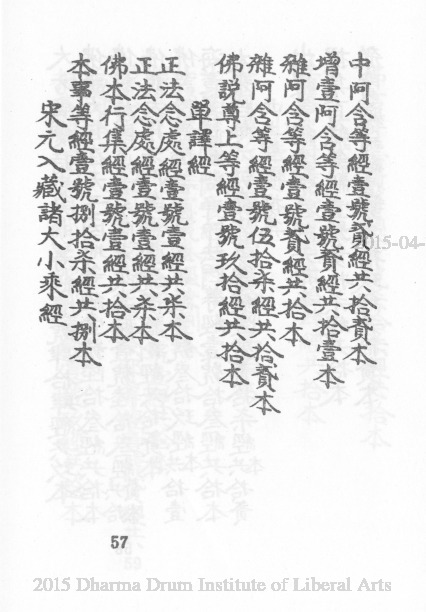 中阿含等經壹號貳經共拾貳本
增壹阿含等經壹號貳經共拾壹本
雜阿含等經壹號貳經共拾本
雜阿含等經壹號伍拾柒經共拾貳本
佛説尊上等經壹號玖拾經共拾本
單譯經
正法念處經壹號壹經共柒本
正法念處經壹號壹經共柒本
佛本行集經壹號壹經共拾本
本事等經壹號捌拾柒經共捌本
宋元入藏諸大小乘經
57
2015-04-
2015 Dharma Drum Institute of Liberal Arts